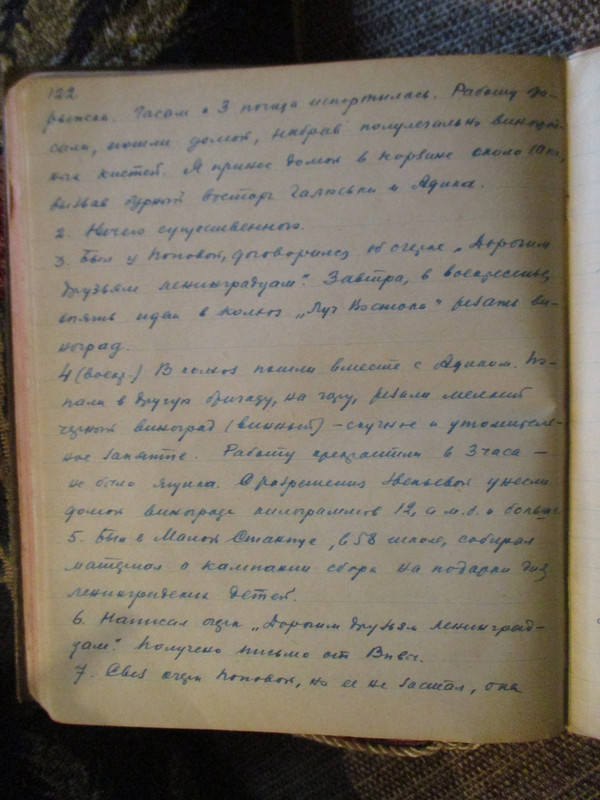 122
Часам к 3 погода испортилась. Работу за-
кончили, пошли домой, набрав полулегально виноград-
ных кистей. Я принес домой в корзине около 10 кг,
вызвав бурный восторг Галюськи и Адика.
2. Ничего существенного.
3. Был у Поповой, договорился об очерке „Дорогим
друзьям ленинградцам“. Завтра, в воскресенье,
опять идем в колхоз „Луч Востока“ резать ви-
ноград.
4 (воскр.) В колхоз пошли вместе с Адиком. По-
пали в другую бригаду, на гору, резали мелкий
черный виноград (винный) – скучное и утомитель-
ное занятие. Работу прекратили в 3 часа –
не было ящика. С разрешения звеньевой унесли
домой винограда килограммов 12, а м.б. и больше
5. Был в Малой Станице, в 58 школе, собирал
материал о кампании сбора на подарки для
ленинградских детей.
6. Написал очерк „Дорогим друзьям ленинград-
цам“. Получено письмо от Вивы.
7. Свез очерк Поповой, но ее не застал, она